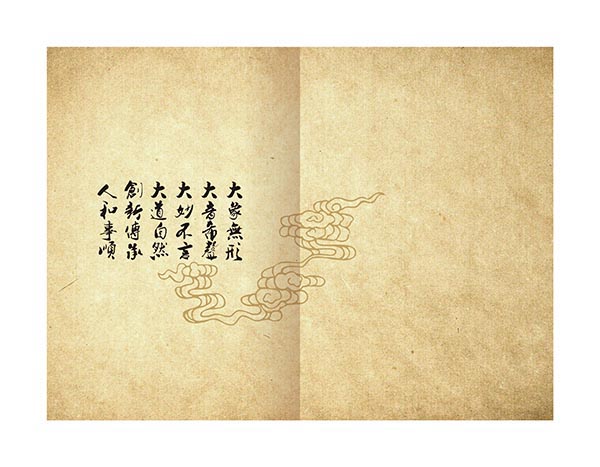 大象無形
大音希聲
大妙不言
大道自然
創新傳承
人和事順